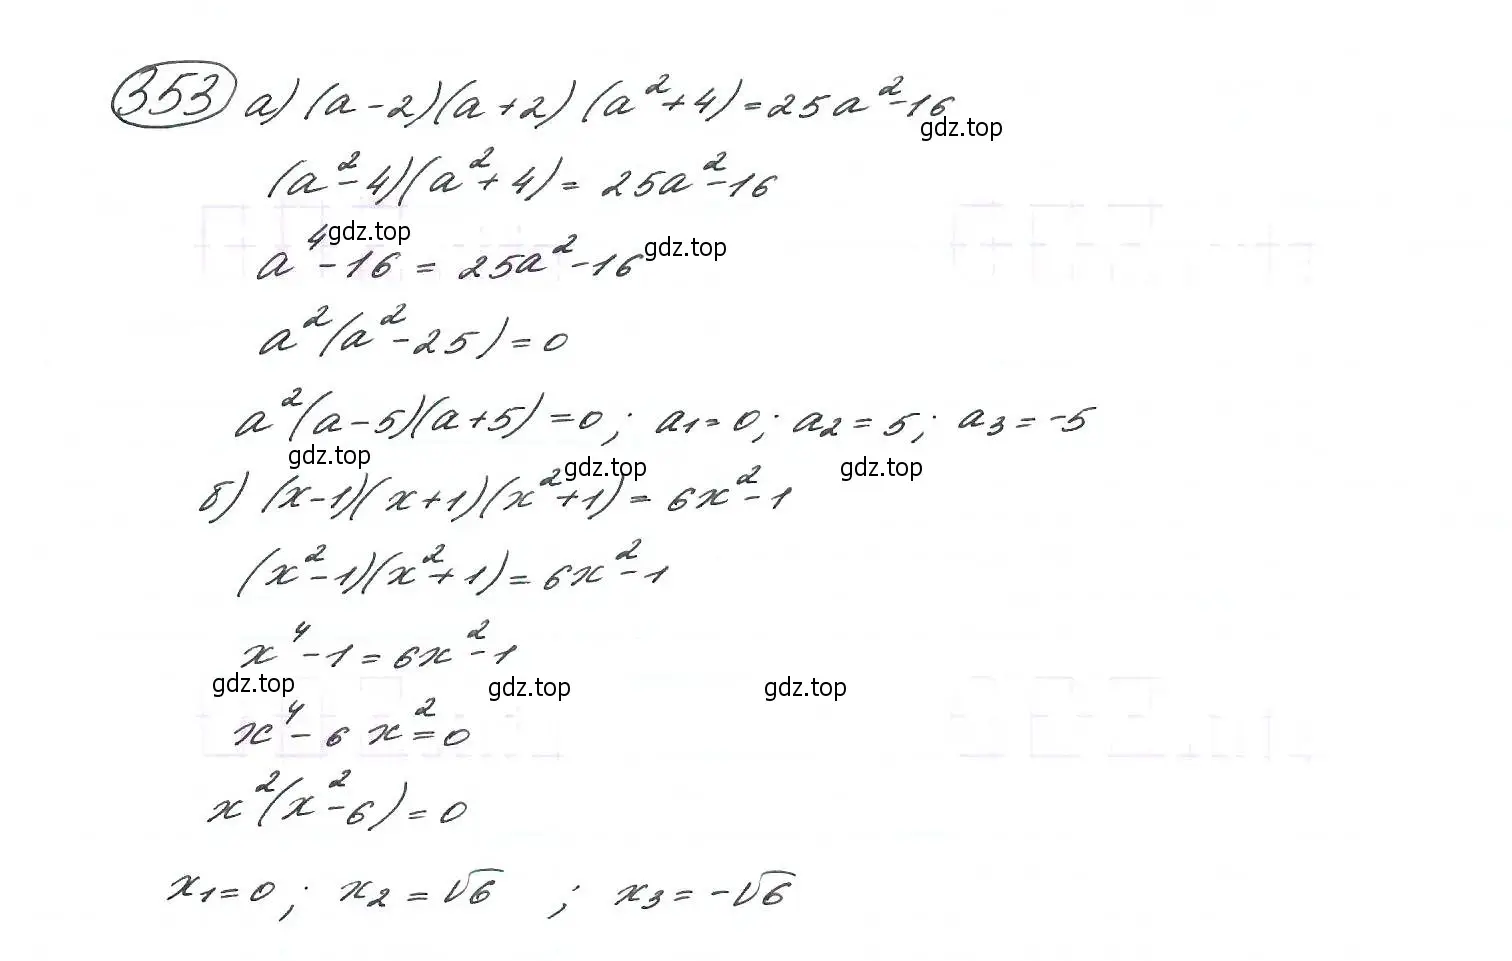 353 а) (a-2)(a+2)(a²+4)=25a²-16
gdz.top
(a²-4)(a²+4)=25a²-16
gdz.top
gdz.top
a⁴-16=25a²-16
a²(a²-25)=0
a²(a-5)(a+5)=0; a₁=0; a₂=5; a₃=-5
gdz.top gdz.top gdz.top
б) (x-1)(x+1)(x²+1)=6x²-1
(x²-1)(x²+1)=6x²-1
x⁴-1=6x²-1
gdz.top gdz.top gdz.top
x⁴-6x²=0
x²(x²-6)=0
x₁=0; x₂=√6 ; x₃=-√6